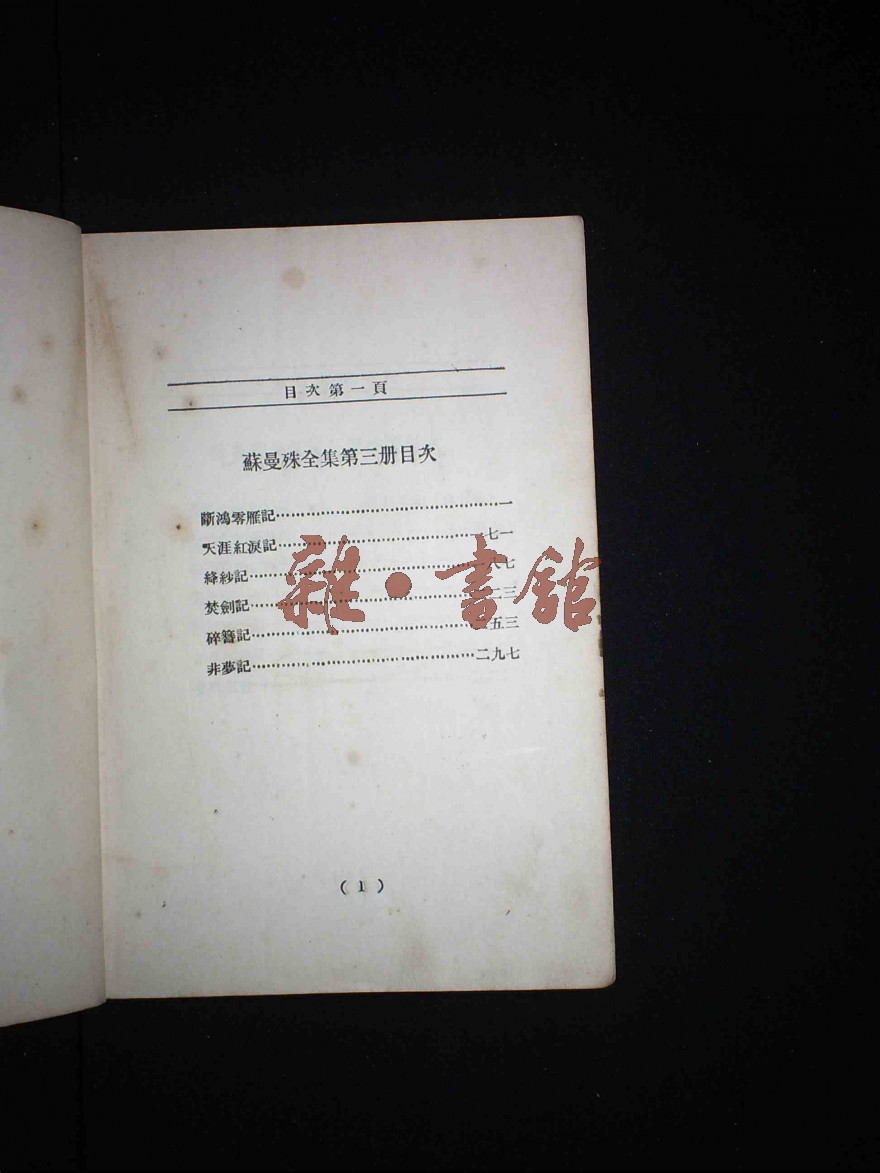 目次第一頁
蘇曼殊全集第三册目次
斷鴻零雁記……………………………………一
天涯紅淚記…………………………………七一
絳紗記……………………………………八七
焚劍記……………………………………二三
碎簪記……………………………………五三
非夢記……………………………………二九七
(1)
雜·書館